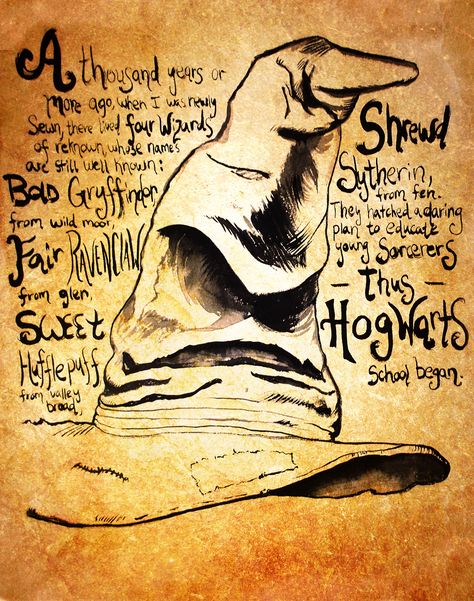 A thousand years or
more ago, when I was newly
sewn, there lived four Wizards
of reknown, whose names
are still well known:
Bold Gryffindor
from wild moor,
Fair RAVENCLAW
from glen,
Sweet
Hufflepuff
from valley
broad,
Shrewd
Slytherin,
from fen.
They hatched a daring
plan to educate
young Sorcerers
- Thus -
Hogwarts
School began.